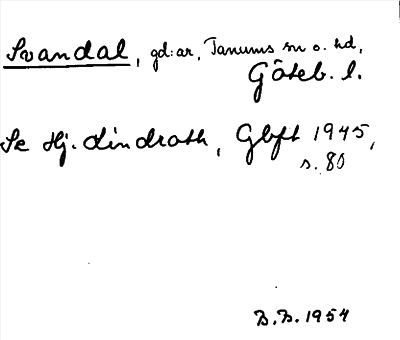 Svandal, gd:ar, Tanums sn o. hd,
Göteb. l.
Se Hj. Lindroth, Gbft 1945,
s. 80
B.B. 1954